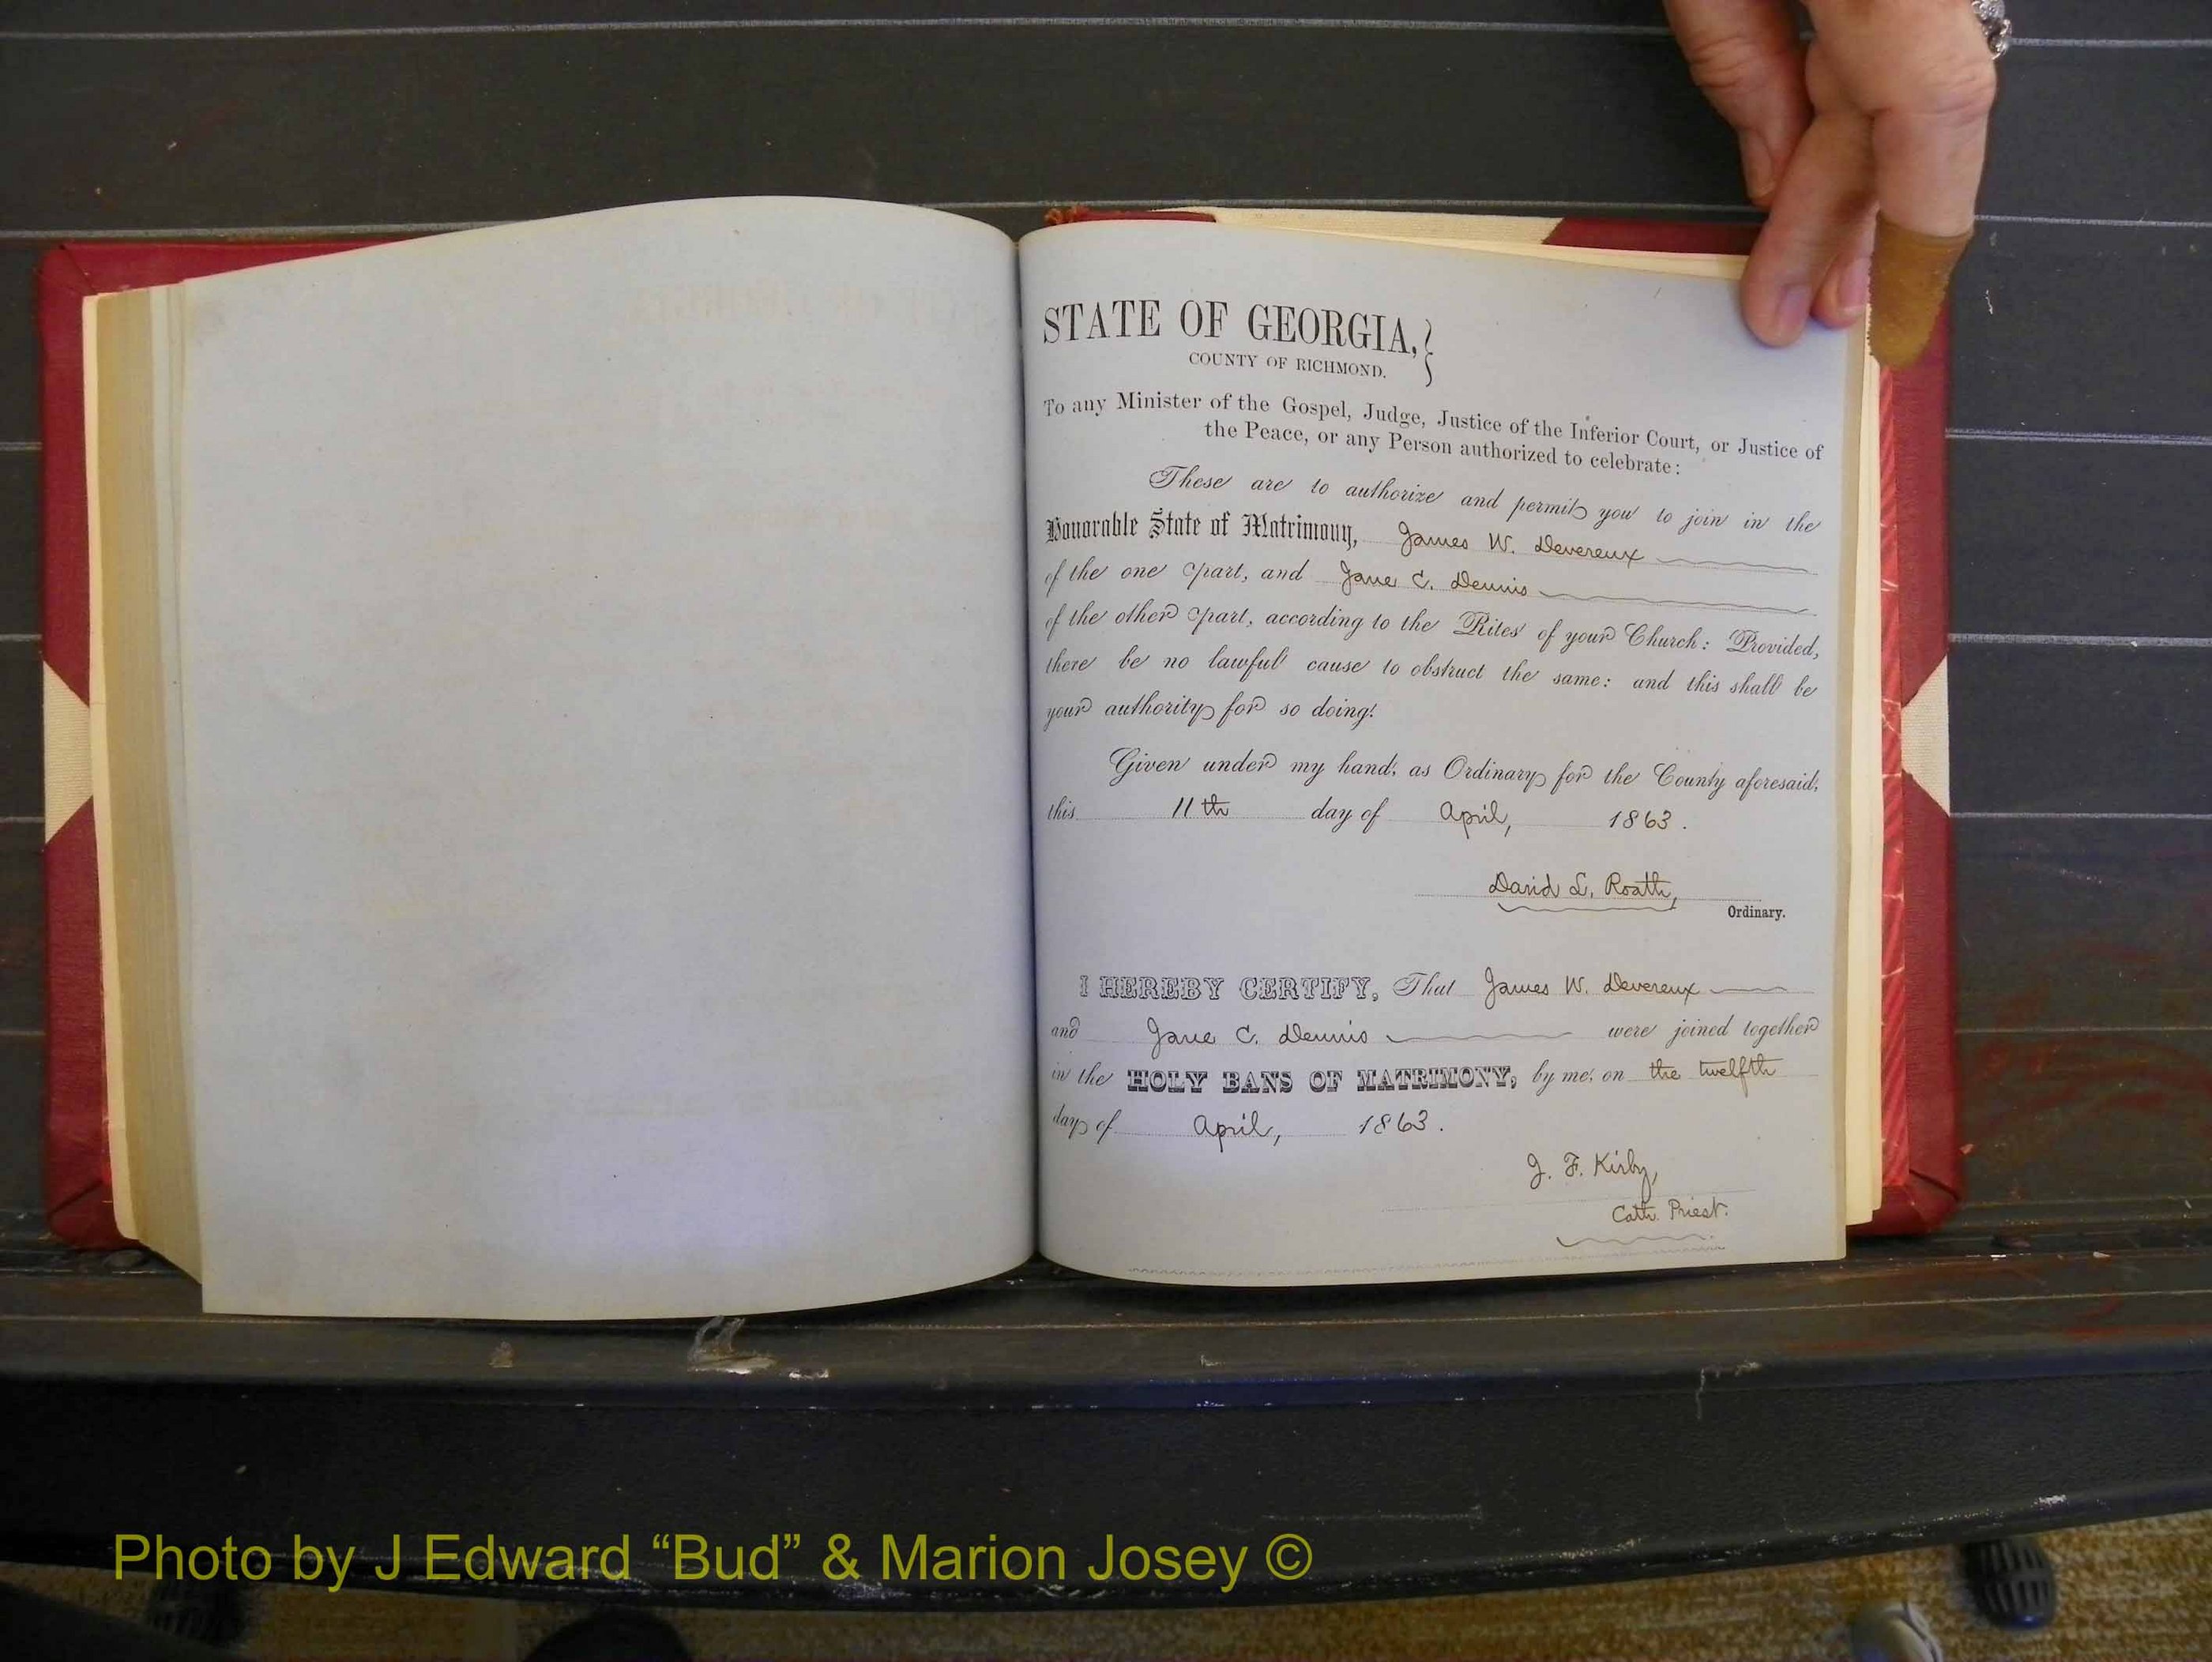 STATE OF GEORGIA,
COUNTY OF RICHMOND.
To any Minister of the Gospel, Judge, Justice of the Inferior Court, or Justice of
the Peace, or any Person authorized to celebrate:
These are to authorize and permit you to join in the
Honorable State of Matrimony, James W. Devereux
of the one part, and Jane C. Dennis
of the other part, according to the Rites of your Church: Provided,
there be no lawful cause to obstruct the same: and this shall be
your authority for so doing.
Given under my hand, as Ordinary for the County aforesaid,
this 11th day of April, 1863.
David L. Roath,
Ordinary.
I HEREBY CERTIFY, That James W. Devereux
and Jane C. Dennis were joined together
in the HOLY BANS OF MATRIMONY, by me, on the twelfth
day of April, 1863.
J. F. Kirby,
Cath. Priest.
Photo by J Edward “Bud” & Marion Josey ©